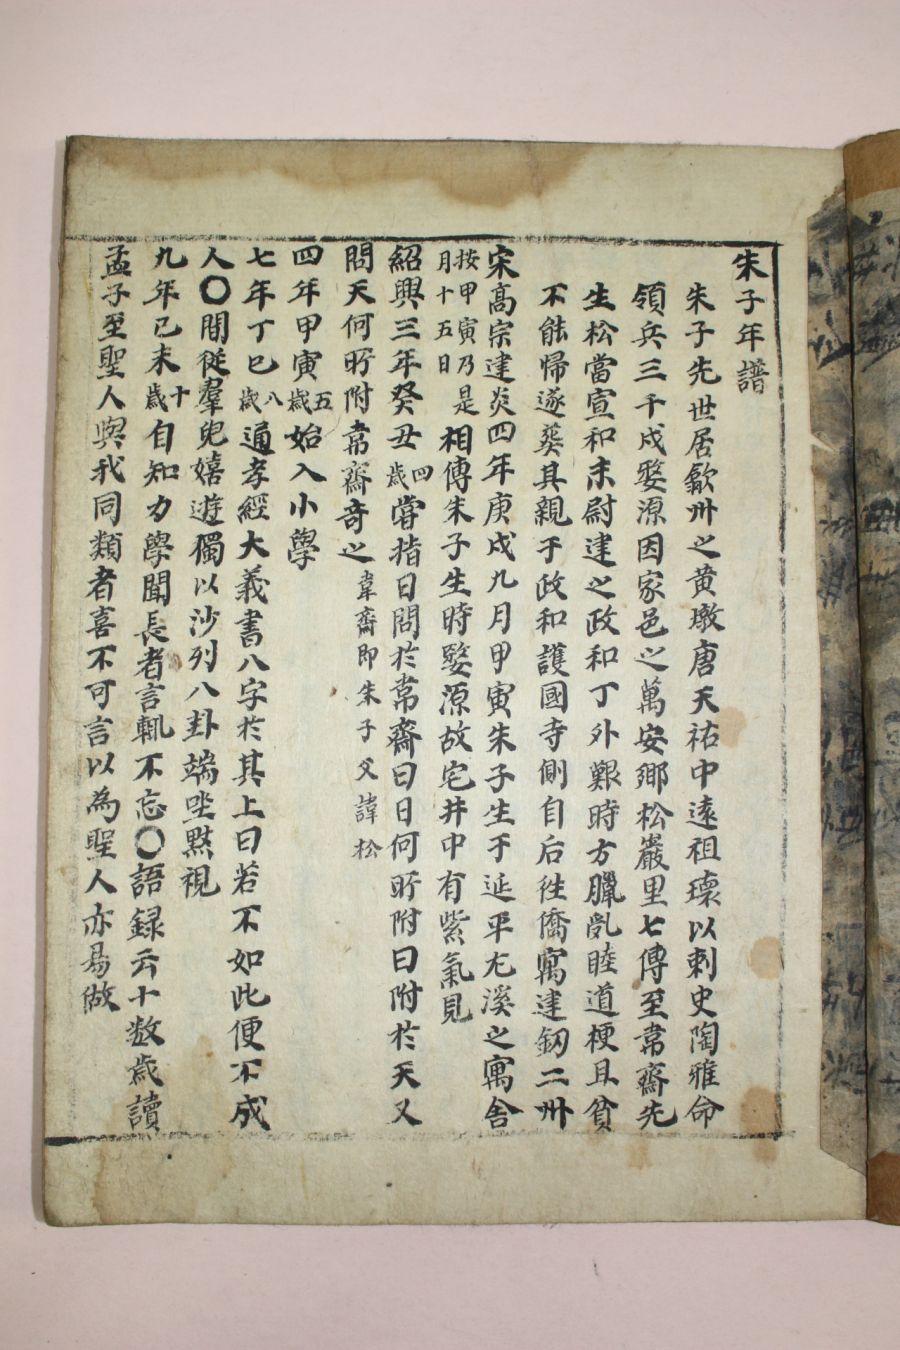 朱子年譜
朱子先世居歙州之黃墩唐天祐中遠祖瓌以刺史陶雅命
領兵三千戍婺源因家邑之萬安鄉松巖里七傳至韋齋先
生松當宣和末尉建之政和丁外艱時方臘亂睦道梗且貧
不能歸遂葬其親于政和護國寺側自后往僑寓建釰二州
宋高宗建炎四年庚戌九月甲寅朱子生于延平尤溪之寓舍
按甲寅乃是月十五日 相傳朱子生時婺源故宅井中有紫氣見
紹興三年癸丑四歲嘗指日問於韋齋曰日何所附曰附於天又
問天何所附韋齋奇之韋齋即朱子父諱松
四年甲寅五歲始入小學
七年丁巳八歲通孝經大義書八字於其上曰若不如此便不成
人〇閒從羣兒嬉遊獨以沙列八卦端坐默視
九年己未十歲自知力學聞長者言輒不忘〇語録云十数歲讀
孟子至聖人與我同類者喜不可言以為聖人亦易做